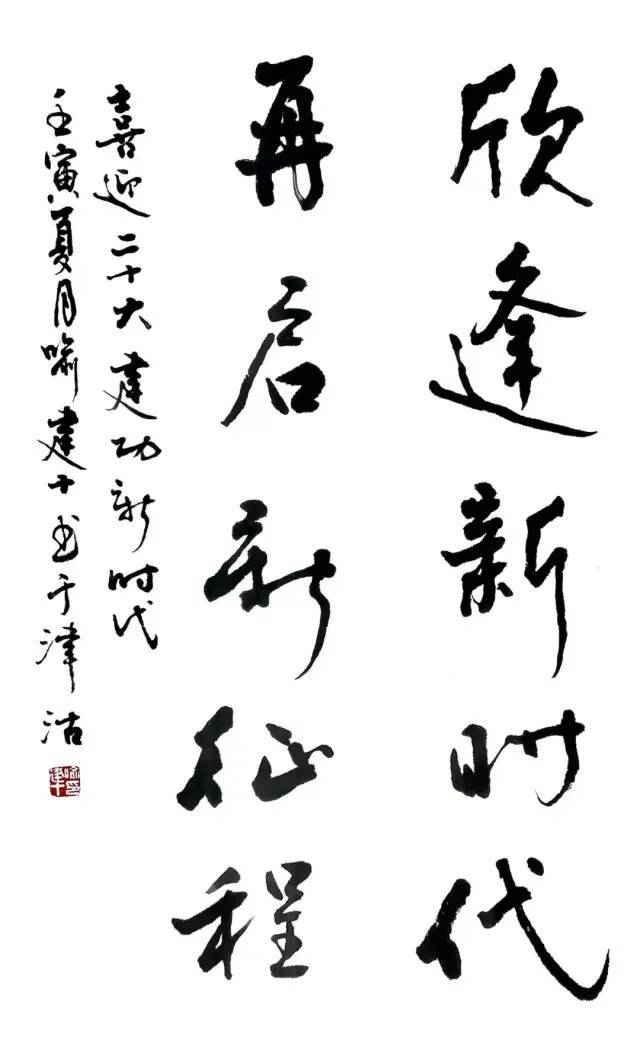 欣逢新时代
再启新征程
喜迎二十大建功新时代
壬寅夏月喻建十书于津沽
喻建十印